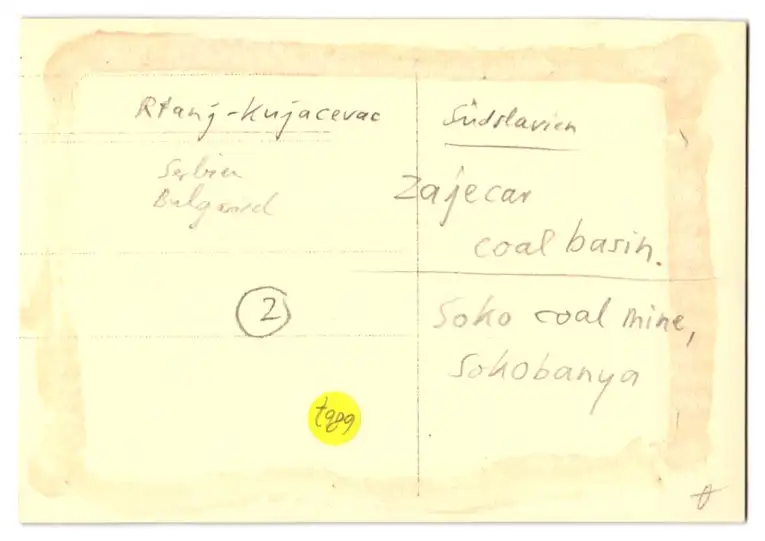 Rtanj-Kujacevac
Serbien
Südslavien
Zaječar
coal basin.
Soko coal mine,
Sokobanya
2